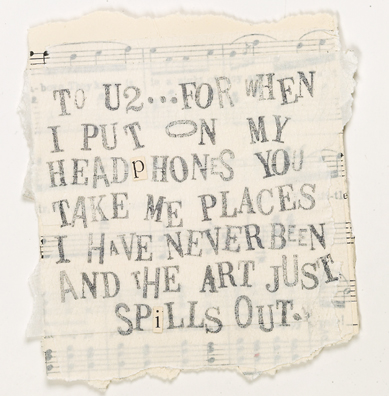 TO U2...FOR WHEN
I PUT ON MY
HEADpHONES YOU
TAKE ME PLACES
I HAVE NEVER BEEN
AND THE ART JUST
SPiLLS OUT.